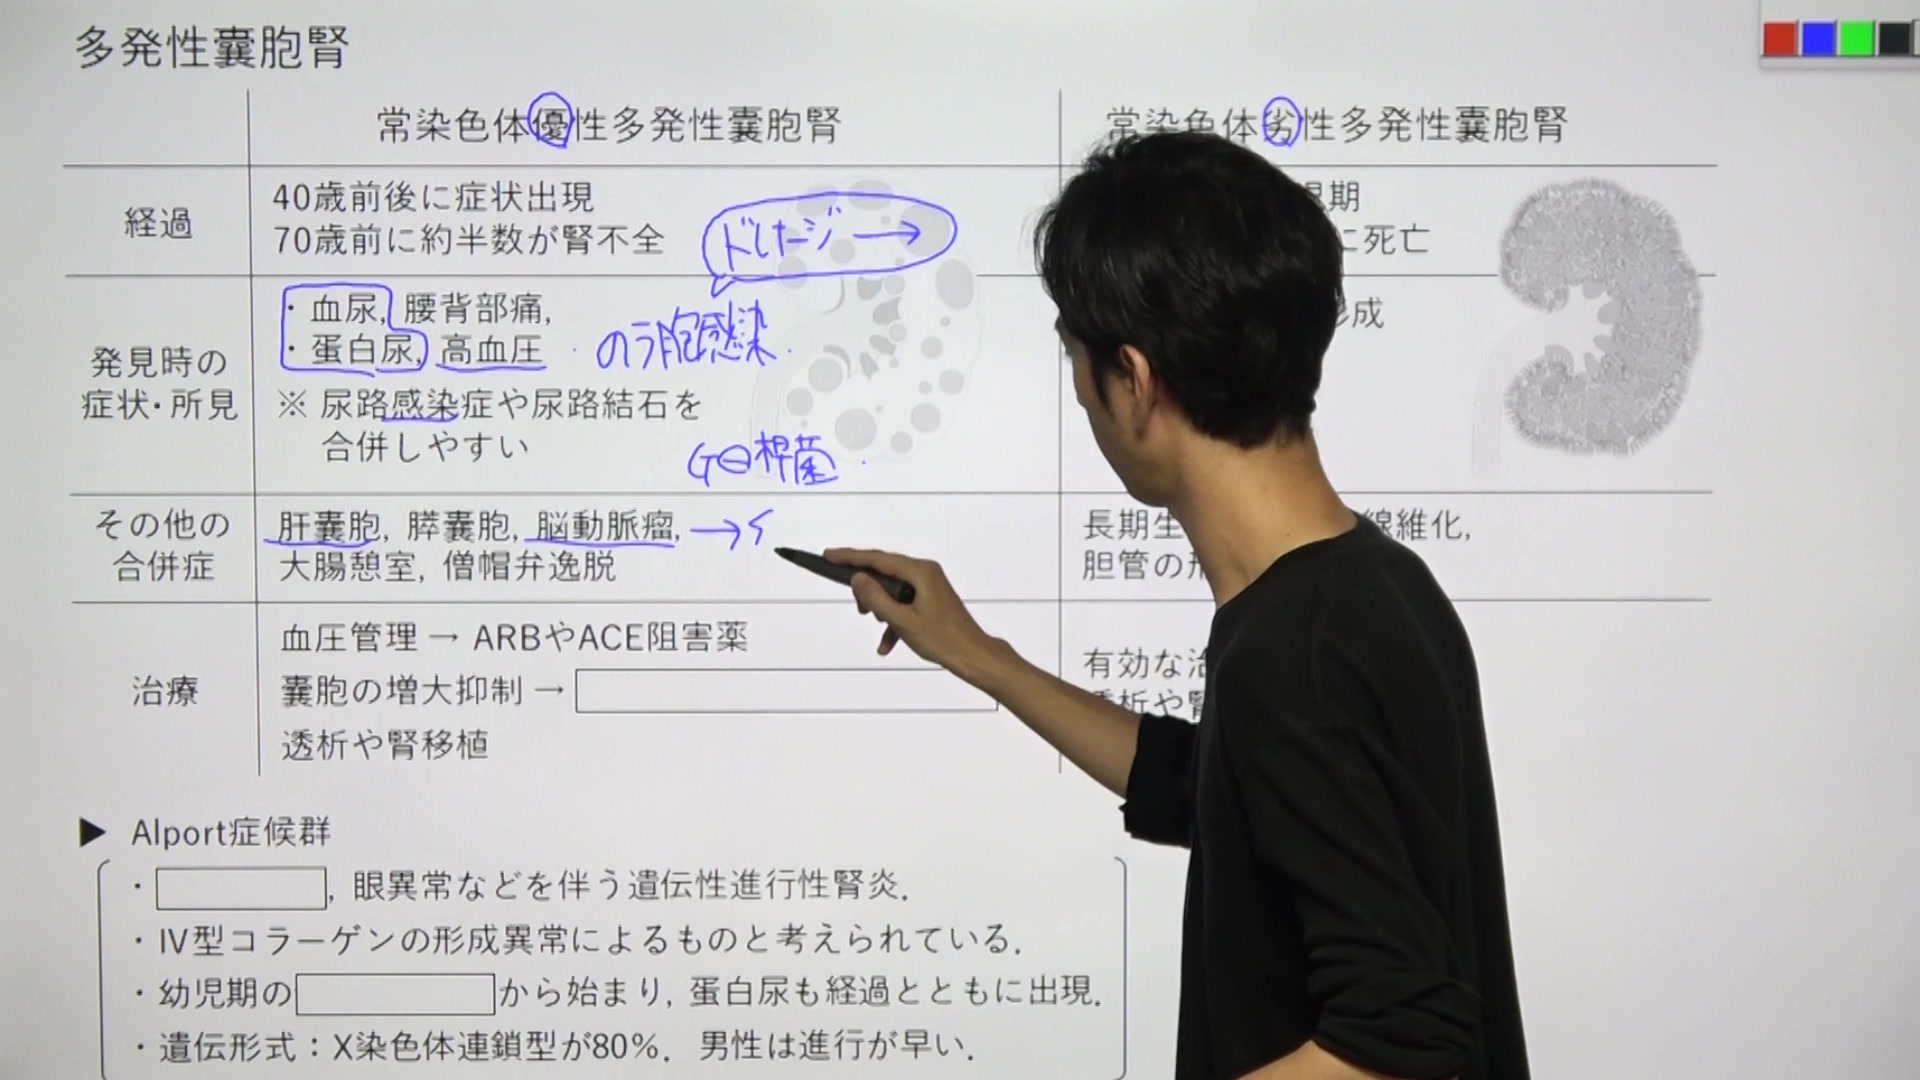 多発性嚢胞腎
常染色体優性多発性嚢胞腎
常染色体劣性多発性嚢胞腎
経過
40歳前後に症状出現
70歳前に約半数が腎不全
期
に死亡
発見時の
症状・所見
・血尿, 腰背部痛,
・蛋白尿, 高血圧
感染
※ 尿路感染症や尿路結石を
合併しやすい
G⊖桿菌
形成
その他の
合併症
肝嚢胞, 膵嚢胞, 脳動脈瘤, →
大腸憩室, 僧帽弁逸脱
長期生 線維化,
胆管の
治療
血圧管理 → ARBやACE阻害薬
嚢胞の増大抑制 →
透析や腎移植
有効な治
透析や腎
▶ Alport症候群
・ , 眼異常などを伴う遺伝性進行性腎炎.
・Ⅳ型コラーゲンの形成異常によるものと考えられている.
・幼児期の から始まり, 蛋白尿も経過とともに出現.
・遺伝形式：X染色体連鎖型が80%. 男性は進行が早い.